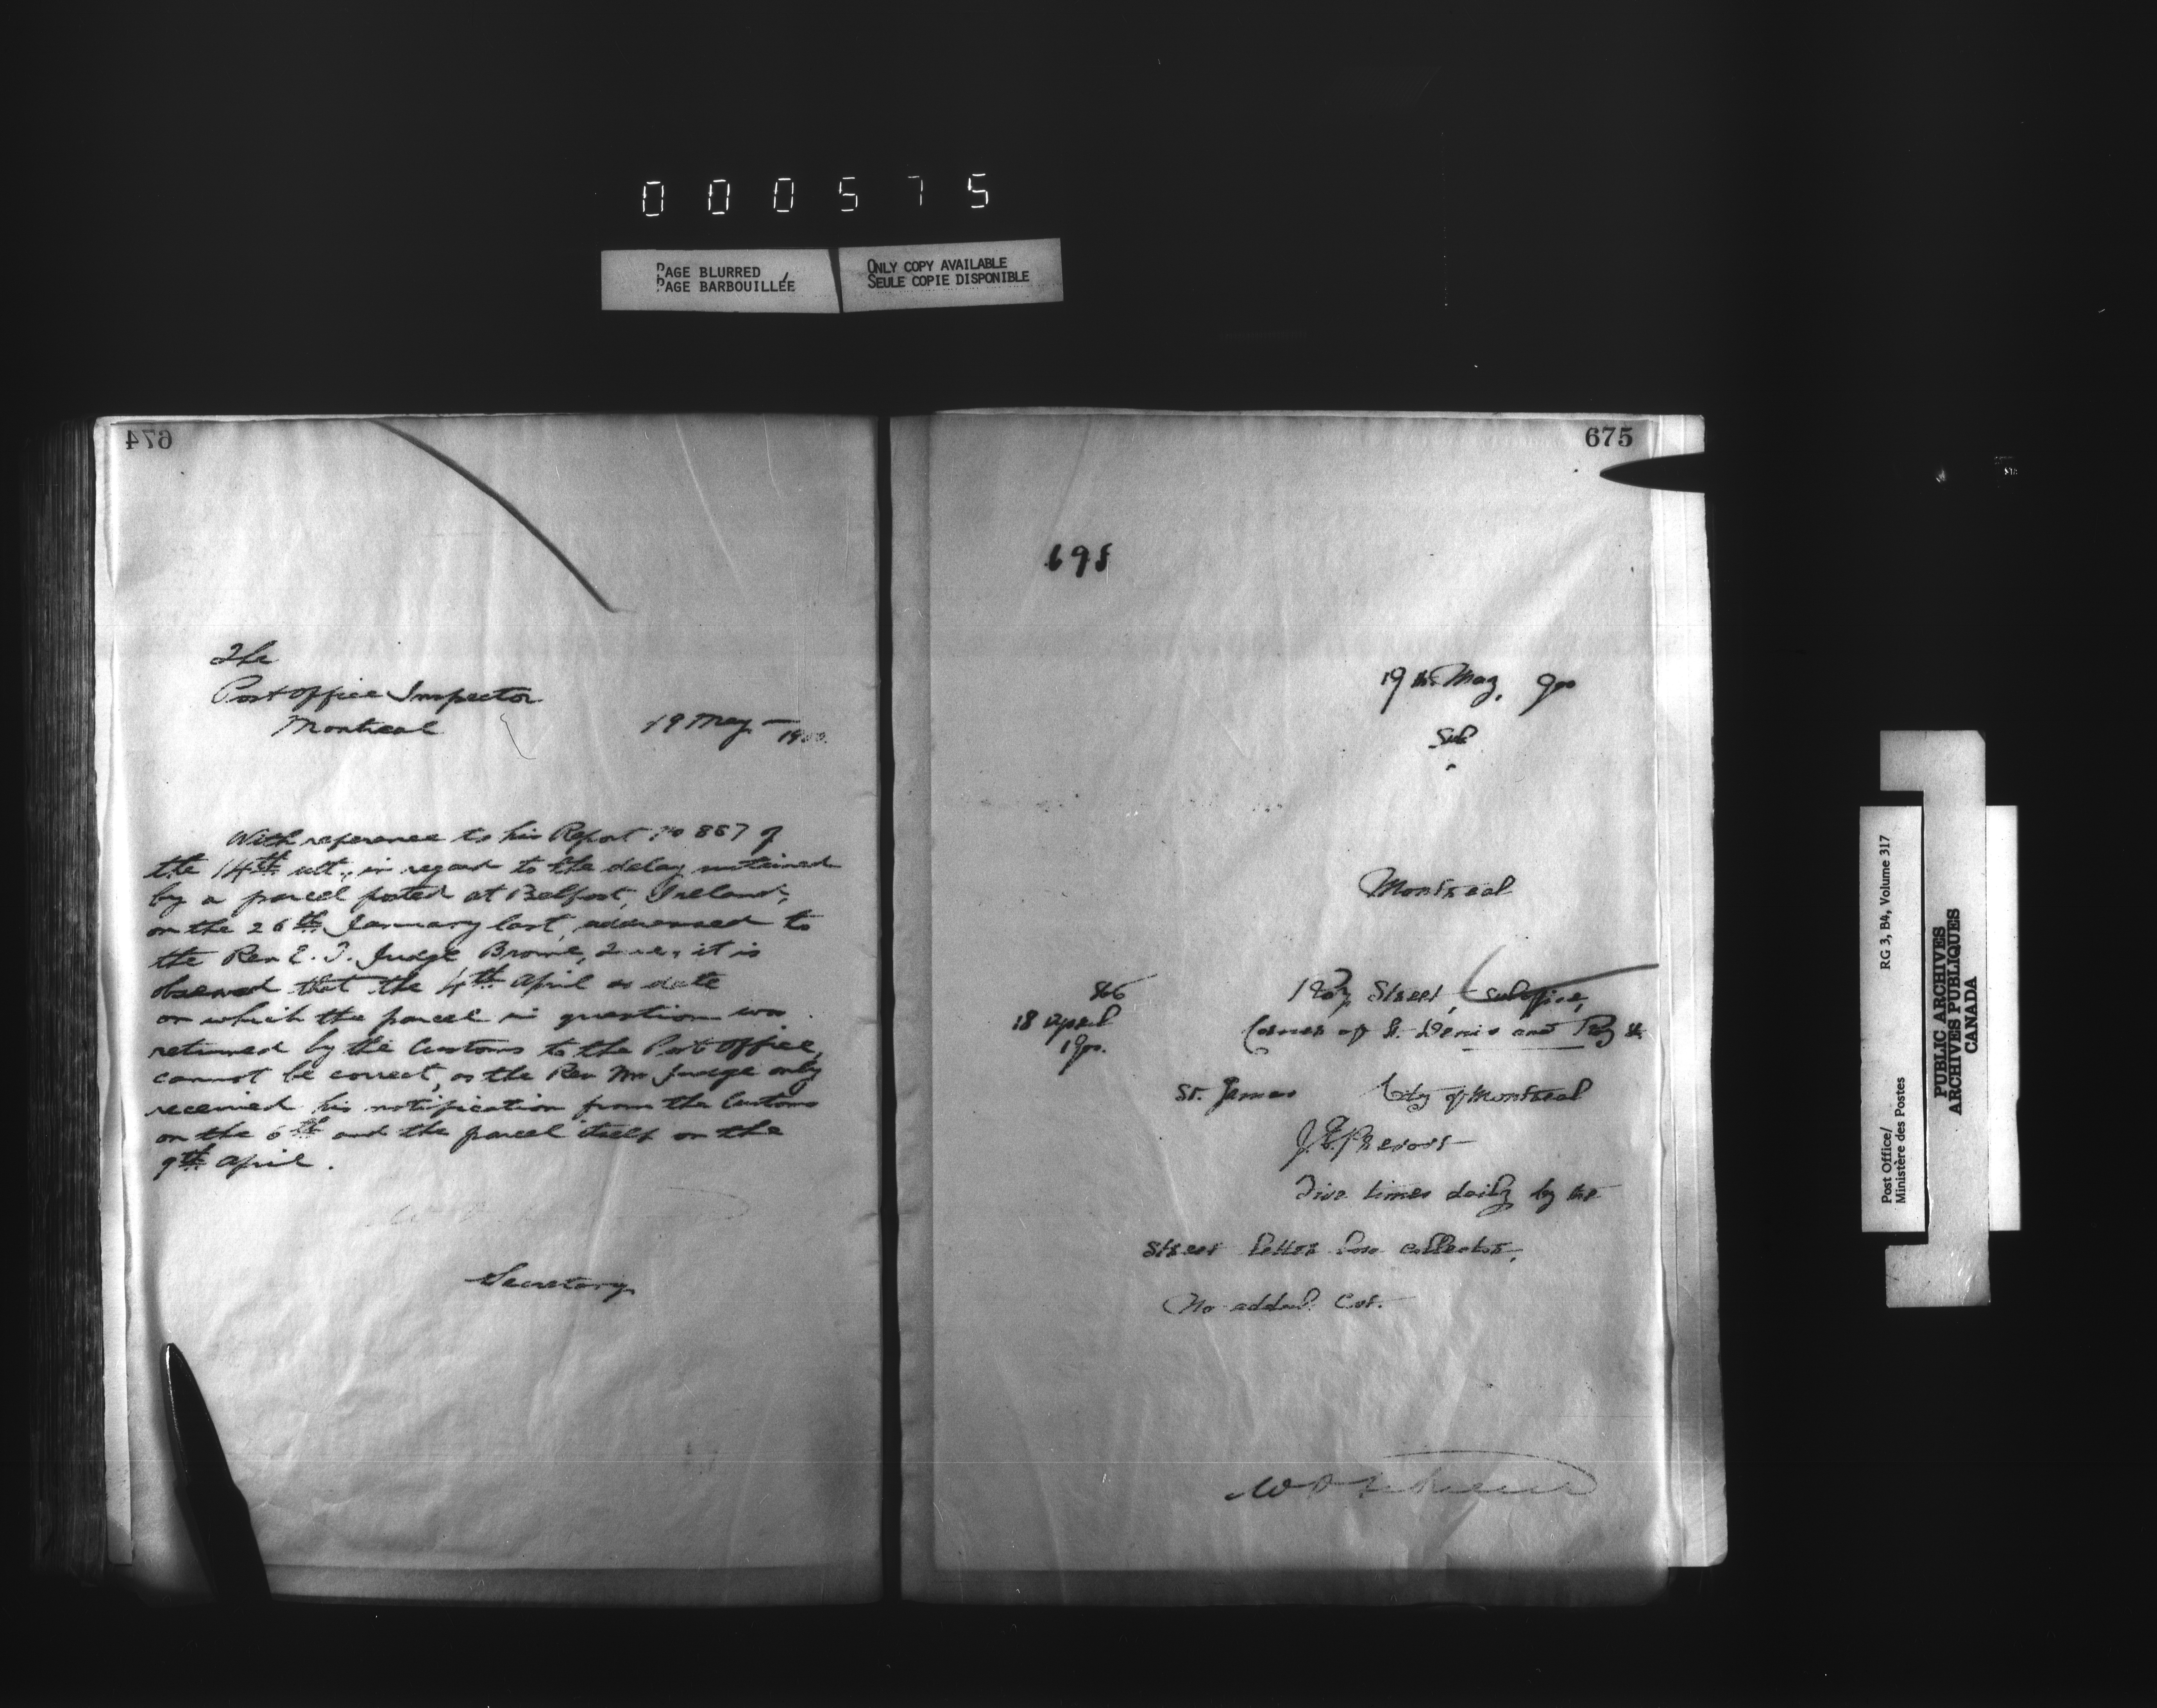 000575
PAGE BLURRED
PAGE BARBOUILLÉE
ONLY COPY AVAILABLE
SEULE COPIE DISPONIBLE
674
The
Post Office Inspector
Montreal
19 May 1900.
With reference to his Report No 867 of
the 14th ult., in regard to the delay sustained
by a parcel posted at Belfast, Ireland,
on the 26th January last, addressed to
the Rev E. T. Judge Brome, Que, it is
observed that the 4th April as date
on which the parcel in question was
returned by the Customs to the Post Office,
cannot be correct, as the Rev Mr Judge only
received his notification from the Customs
on the 6th and the parcel itself on the
9th April.
Secretary
675
698
19th May, 900
Sub
Montreal
866
18 April
1900.
Roy Street, (sub office,
Corner of St. Denis and Roy St.
St. James City of Montreal
Five times daily by the
street letter box collector.
No added cost.
Post Office/
Ministère des Postes
RG 3, B4, Volume 317
PUBLIC ARCHIVES
ARCHIVES PUBLIQUES
CANADA